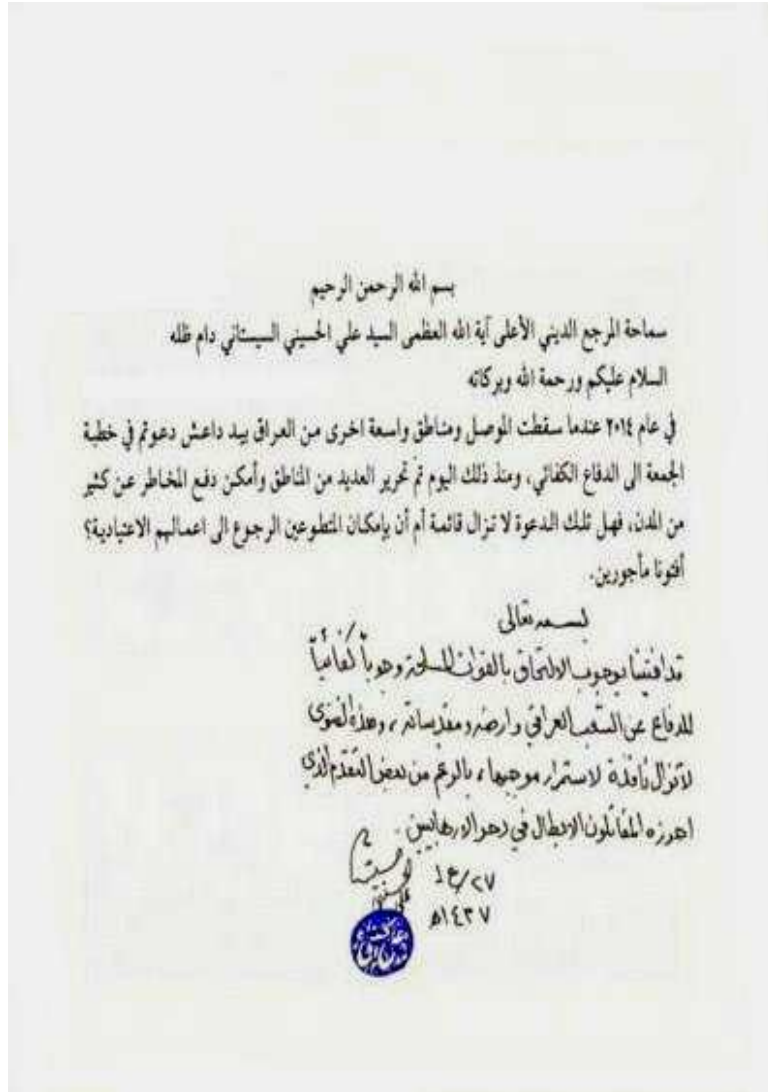 بسم الله الرحمن الرحيم
سماحة المرجع الديني الأعلى آية الله العظمى السيد علي الحسيني السيستاني دام ظله
السلام عليكم ورحمة الله وبركاته
في عام ٢٠١٤ عندما سقطت الموصل ومناطق واسعة اخرى من العراق بيد داعش دعوتم في خطبة
الجمعة الى الدفاع الكفائي، ومنذ ذلك اليوم تم تحرير العديد من المناطق وأمكن دفع المخاطر عن كثير
من المدن، فهل تلك الدعوة لا تزال قائمة أم أن بإمكان المتطوعين الرجوع الى اعمالهم الاعتيادية؟
أفتونا مأجورين.
بسمه تعالى
قد افتينا بوجوب الالتحاق بالقوات المسلحة وجوباً كفائياً
للدفاع عن الشعب العراقي وارضه ومقدساته، وهذه الفتوى
لا تزال نافذة لاستمرار موجبها، بالرغم من بعض التقدم الذي
احرزه المقاتلون الابطال في دحر الارهابيين.
٢٧/ع١
١٤٣٧هـ